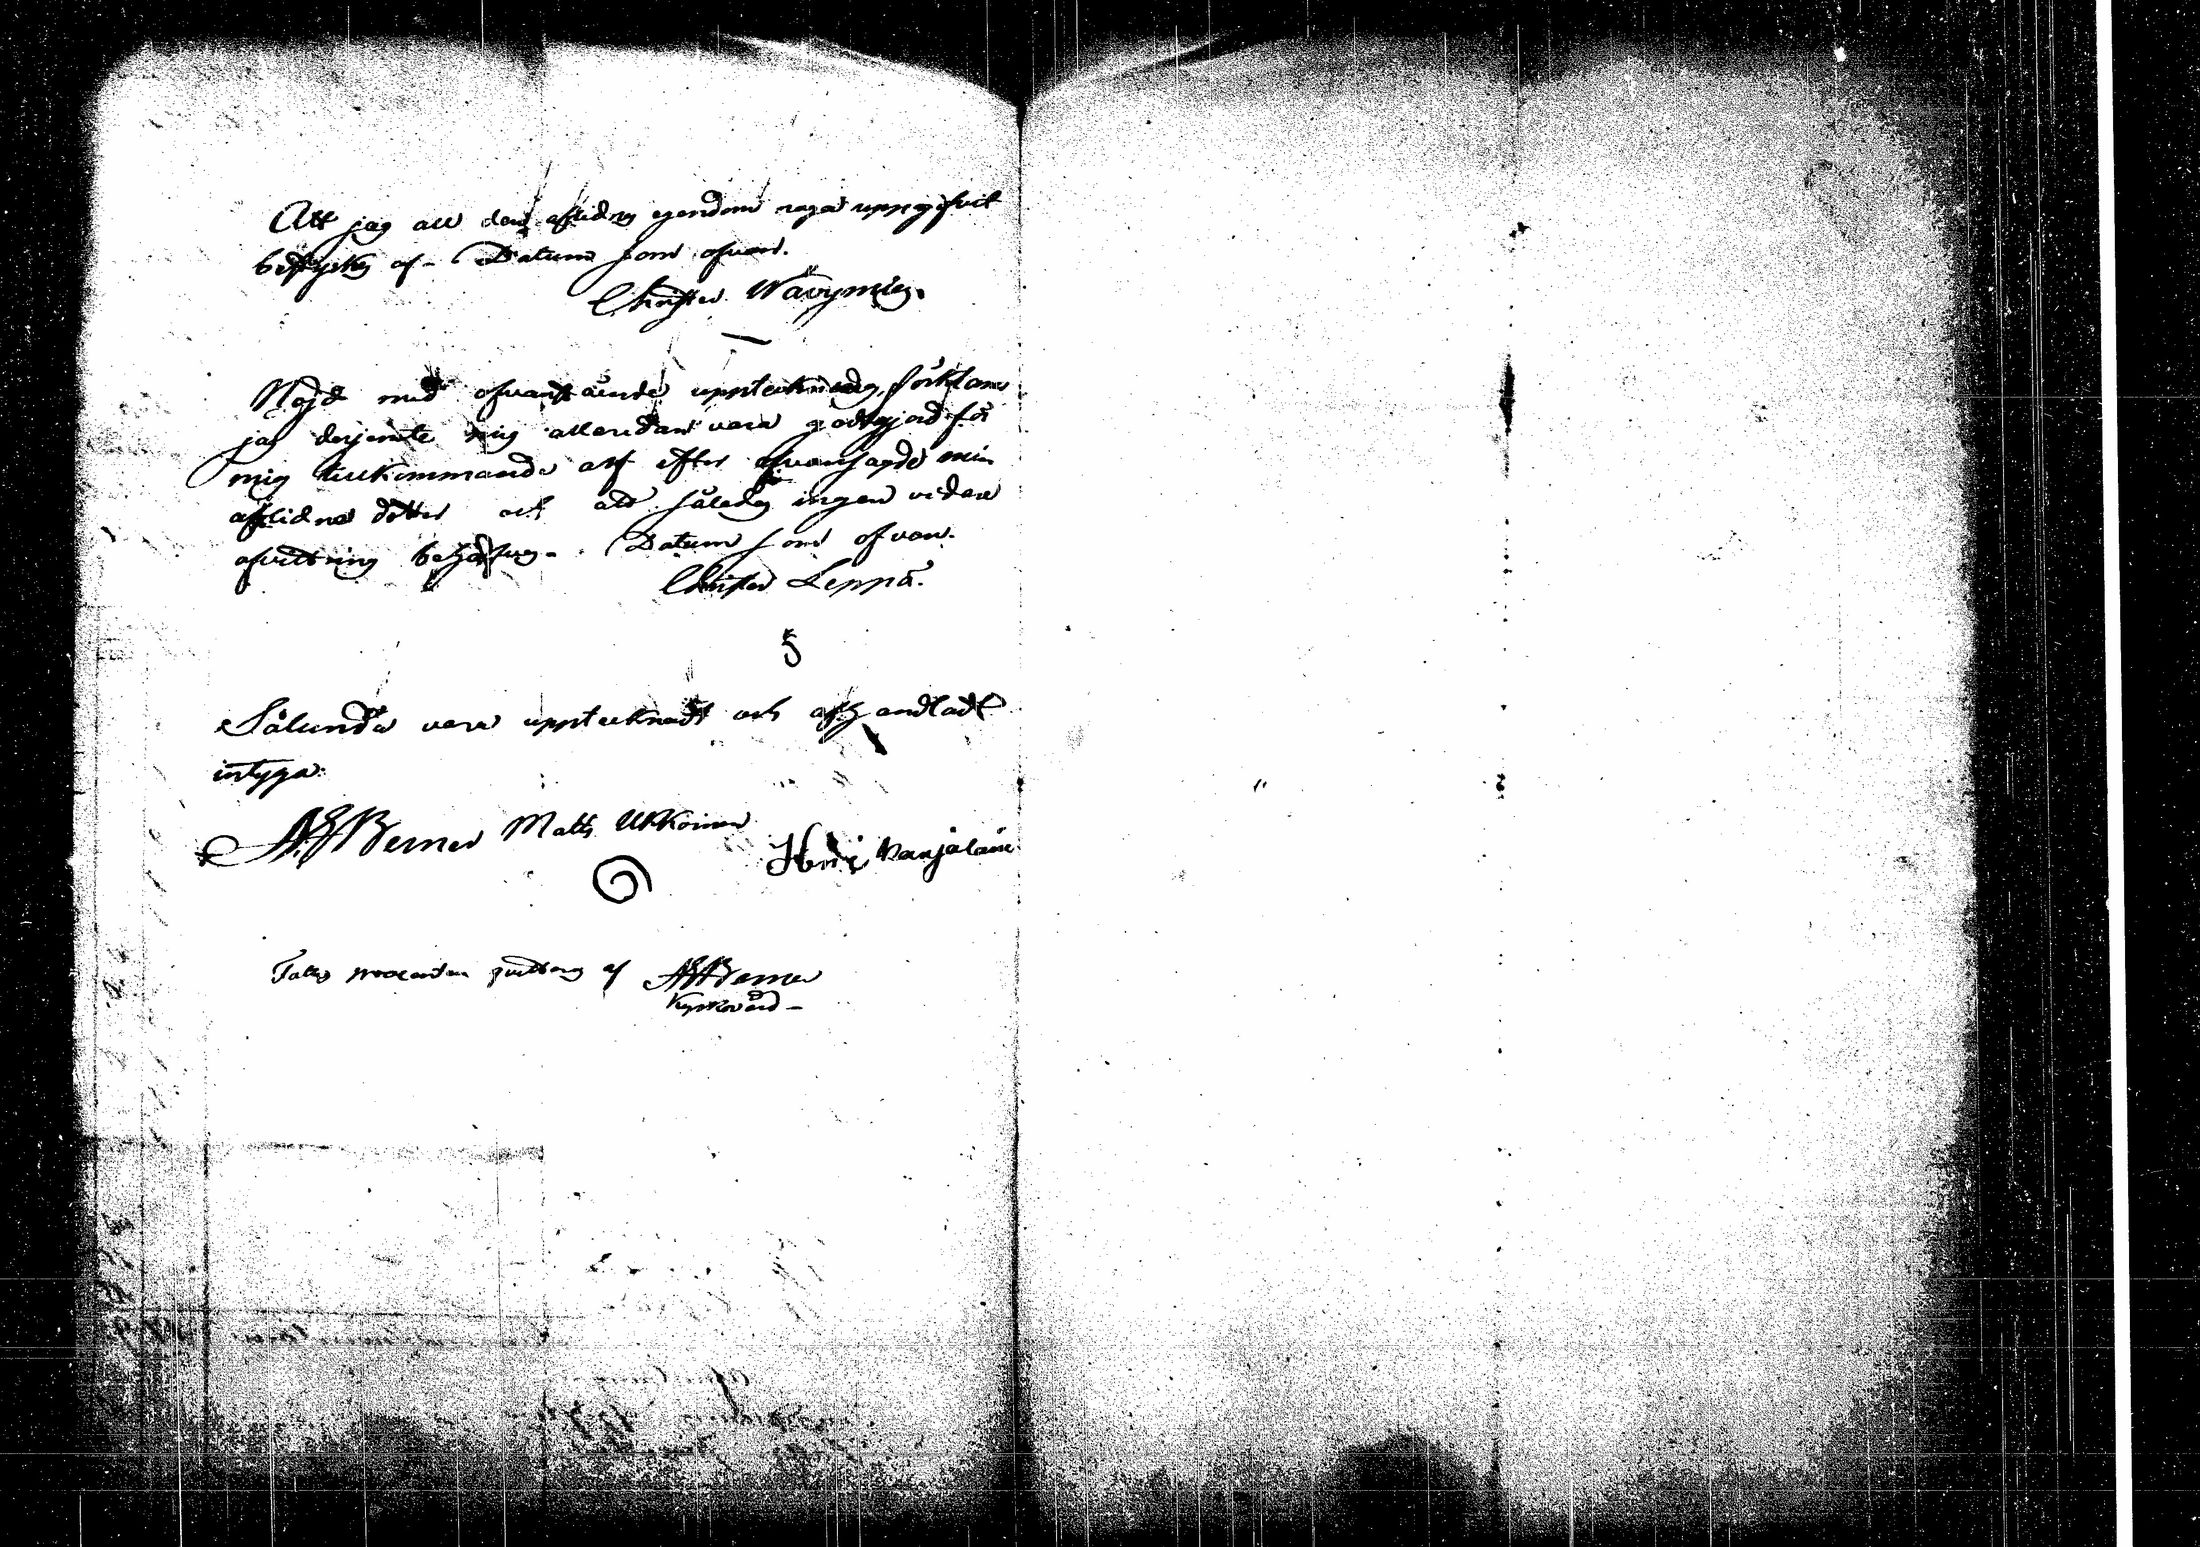 Att jag all den aflidnes egendom noga uppgifvit
betyges af - Datum som ofvan.
Christer Wäyrynien.
Nöjd med ofvanstående uppteckning, förklarar
jag derjemte mig allaredan vara godtgjord för
mig tillkommande arf efter ofvansagde min
aflidna dotter och att således ingen vidare
afvittring behöfves. Datum som ofvan.
Christer Leppä.
§
Sålunda vara upptecknadt och afhandladt
intyga:
Berner Matts Ukkoinen
Henric Karjalain
Fattig procenten quitteras af Berner
Kyrkovärd -